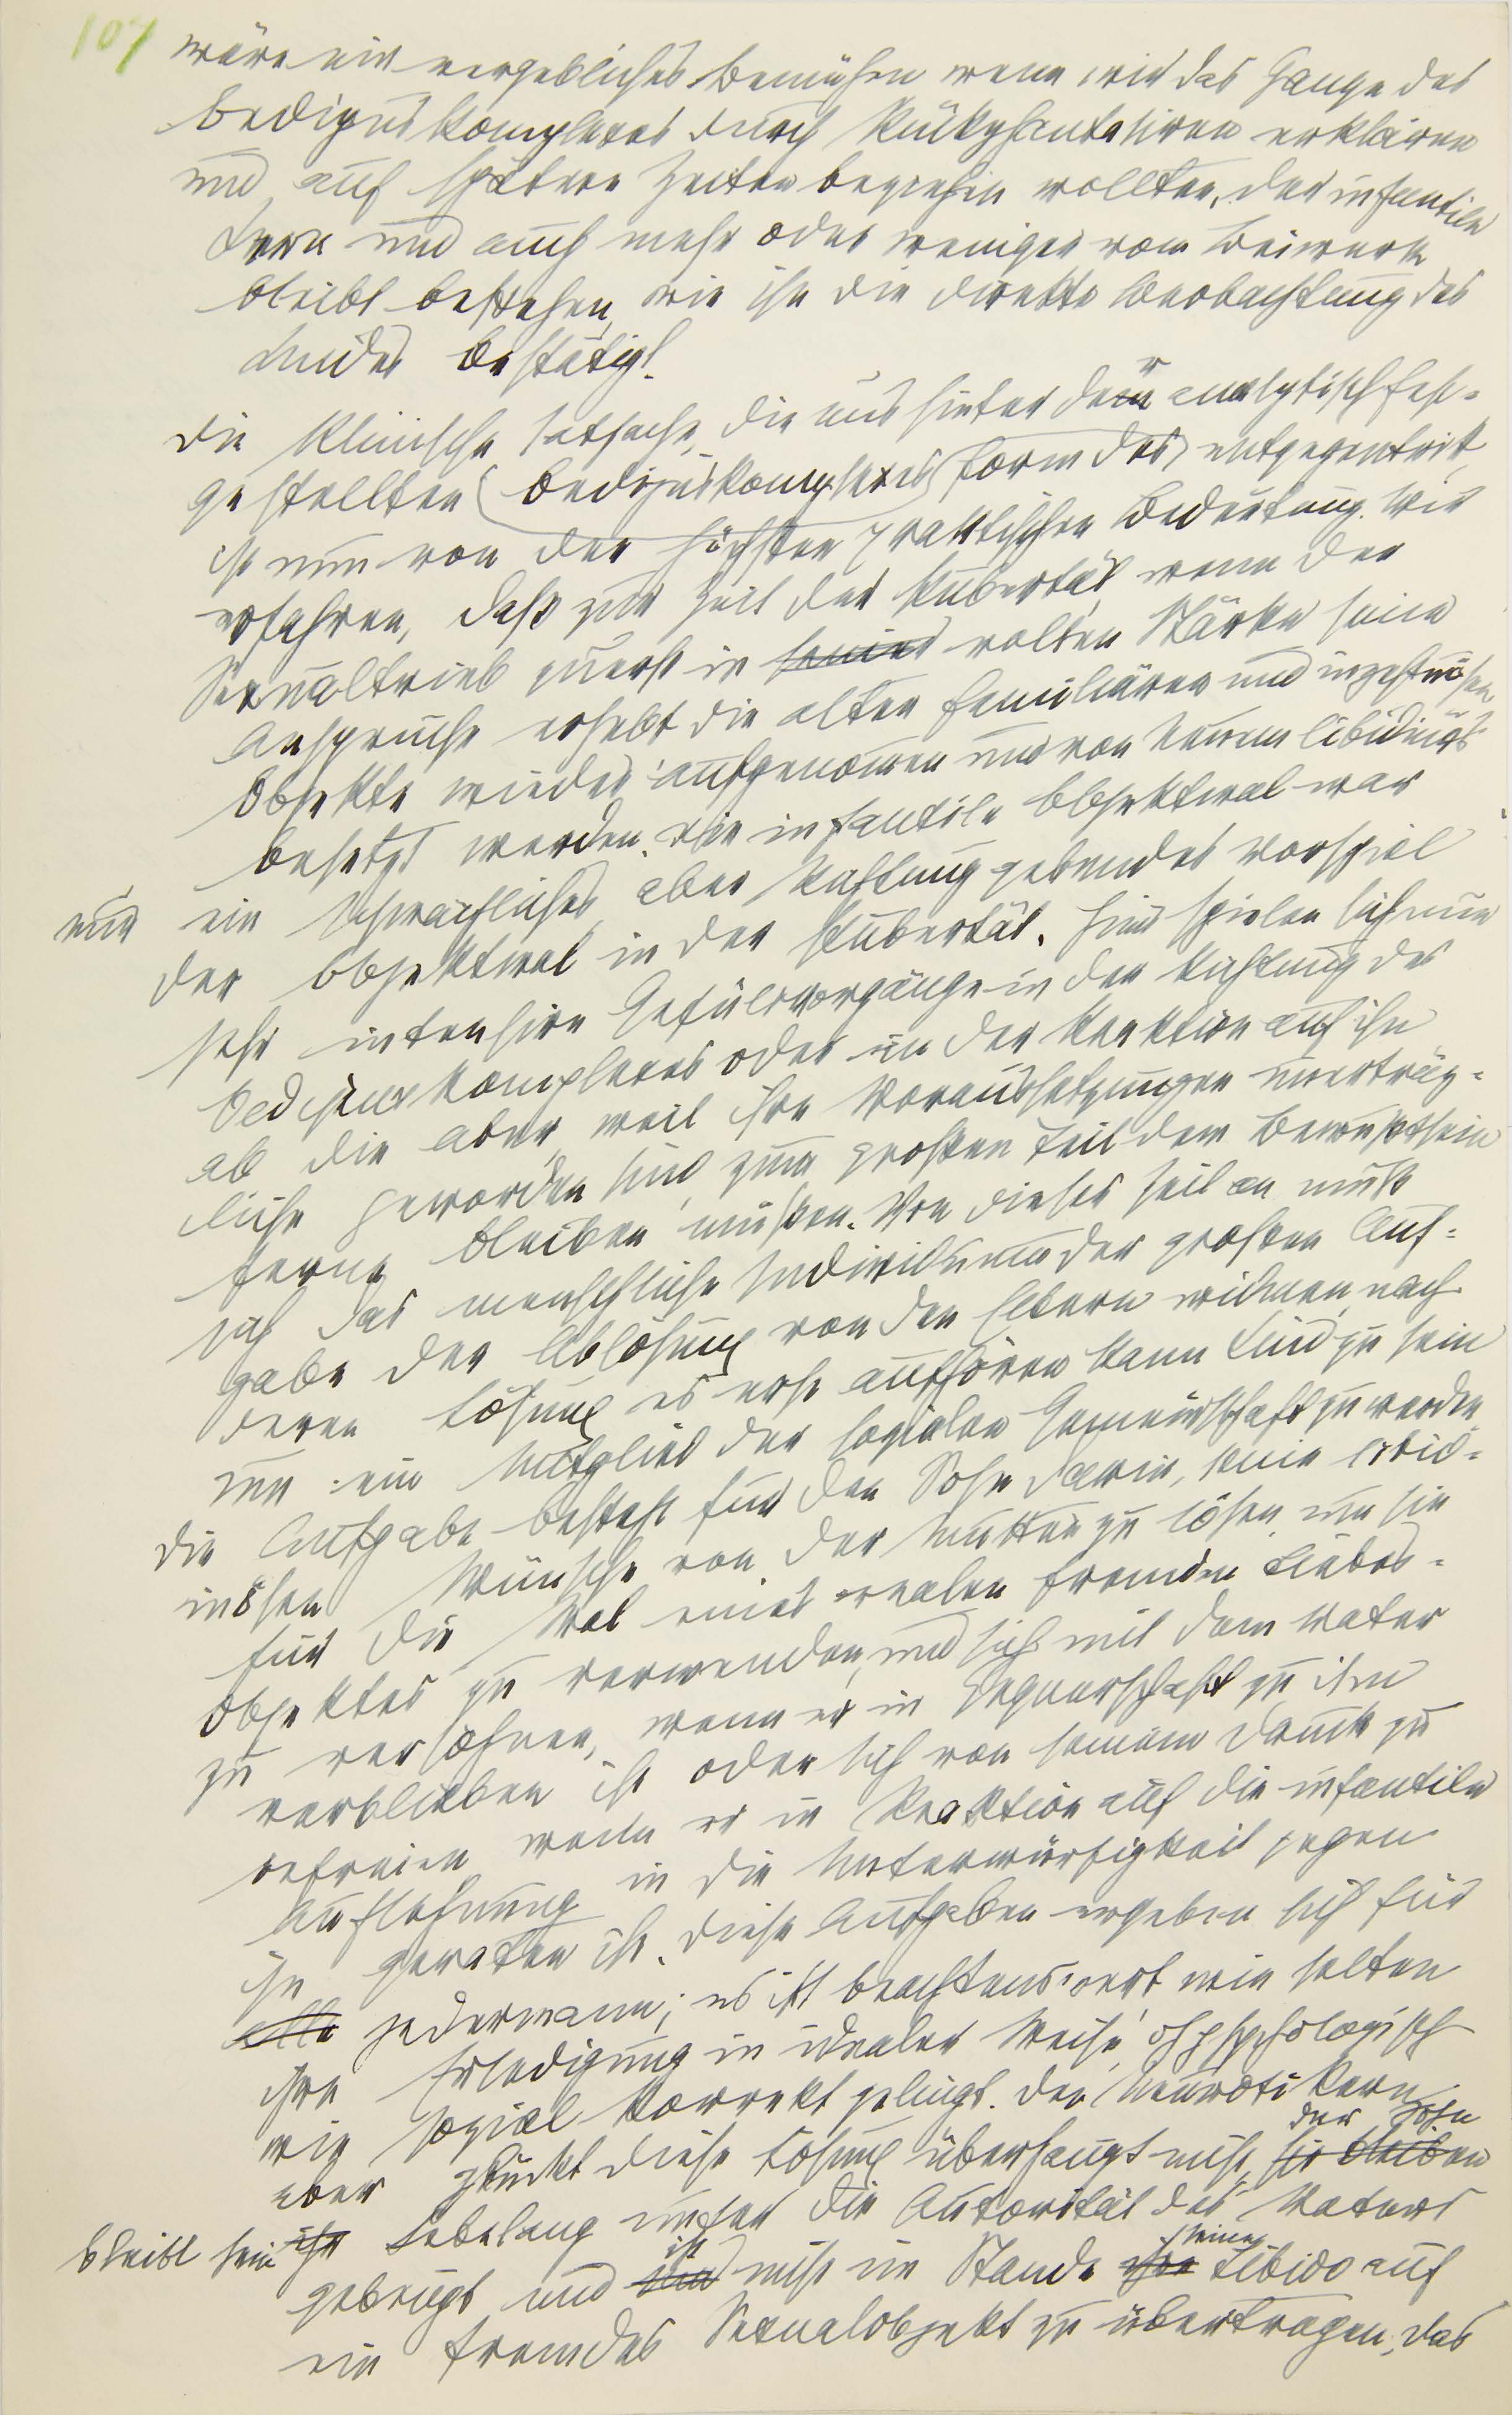 107
wäre ein vergebliches Bemühen wenn wir das Ganze des
Oedipuskomplexes durch Rückphantasiren erklären
und auf spätere Zeiten beziehen wollten. Der infantile
Kern und auch mehr oder weniger vom Beiwerk
bleibt bestehen, wie ihn die direkte Beobachtung des
Kindes bestätigt.
Die klinische Tatsache, die uns hinter der analytisch fest-
gestellten Form des Oedipuskomplexes entgegentritt,
ist nun von der höchsten praktischen Bedeutung. Wir
erfahren, daß zur Zeit der Pubertät, wenn der
Sexualtrieb zuerst in seiner vollen Stärke seine
Ansprüche erhebt die alten familiären und inzestuösen
Objekte wieder aufgenommen und von neuem libidinös
besetzt werden. Die infantile Objektwal war
nur ein schwächliches, aber Richtung gebendes Vorspiel
der Objektwal in der Pubertät. Hier spielen sich nun
sehr intensive Gefülsvorgänge in der Richtung des
Oedipuskomplexes oder in der Reaktion auf ihn
ab die aber, weil ihre Voraussetzungen unerträg-
lich geworden sind, zum großen Teil dem Bewußtsein
ferne bleiben müßen. Von dieser Zeit an muß
sich das menschliche Individuum der großen Auf-
gabe der Ablösung von den Eltern widmen, nach
deren Lösung es erst aufhören kann Kind zu sein
um ein Mitglied der sozialen Gemeinschaft zu werden.
Die Aufgabe besteht für den Sohn darin, seine libid-
inösen Wünsche von der Mutter zu lösen, um sie
für die Wal eines realen fremden Liebes-
objektes zu verwenden, und sich mit dem Vater
zu versöhnen, wenn er in Gegnerschaft zu ihm
verblieben ist oder sich von seinem Druck zu
befreien, wenn er in Reaktion auf die infantile
Auflehnung in die Unterwürfigkeit gegen
ihn geraten ist. Diese Aufgaben ergeben sich für
alle jedermann; es ist beachtenswert wie selten
ihre Erledigung in idealer Weise, dh psychologisch
wie sozial korrekt gelingt. Den Neurotikern
aber glückt diese Lösung überhaupt nicht, sie bleiben der Sohn
bleibt sein ihr Lebelang unter die Autorität des Vaters
gebeugt und sind ist nicht im Stande ihre seine Libido auf
ein fremdes Sexualobjekt zu übertragen. Das